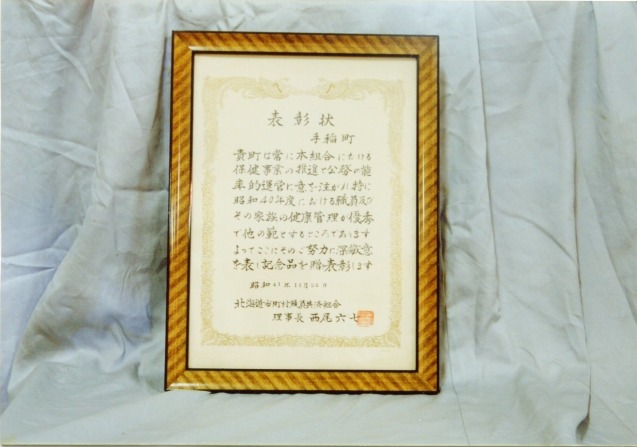 表彰状
手稲町
貴町は常に本組合における
保健事業の推進で公務の能
率的運営に意を注がれ特に
昭和40年度における職員及び
その家族の健康管理が優秀
で他の範とするところであります
よってここにそのご努力に深く敬意
を表し記念品を贈り表彰します
昭和41年11月
北海道市町村職員共済組合
理事長 西尾六七